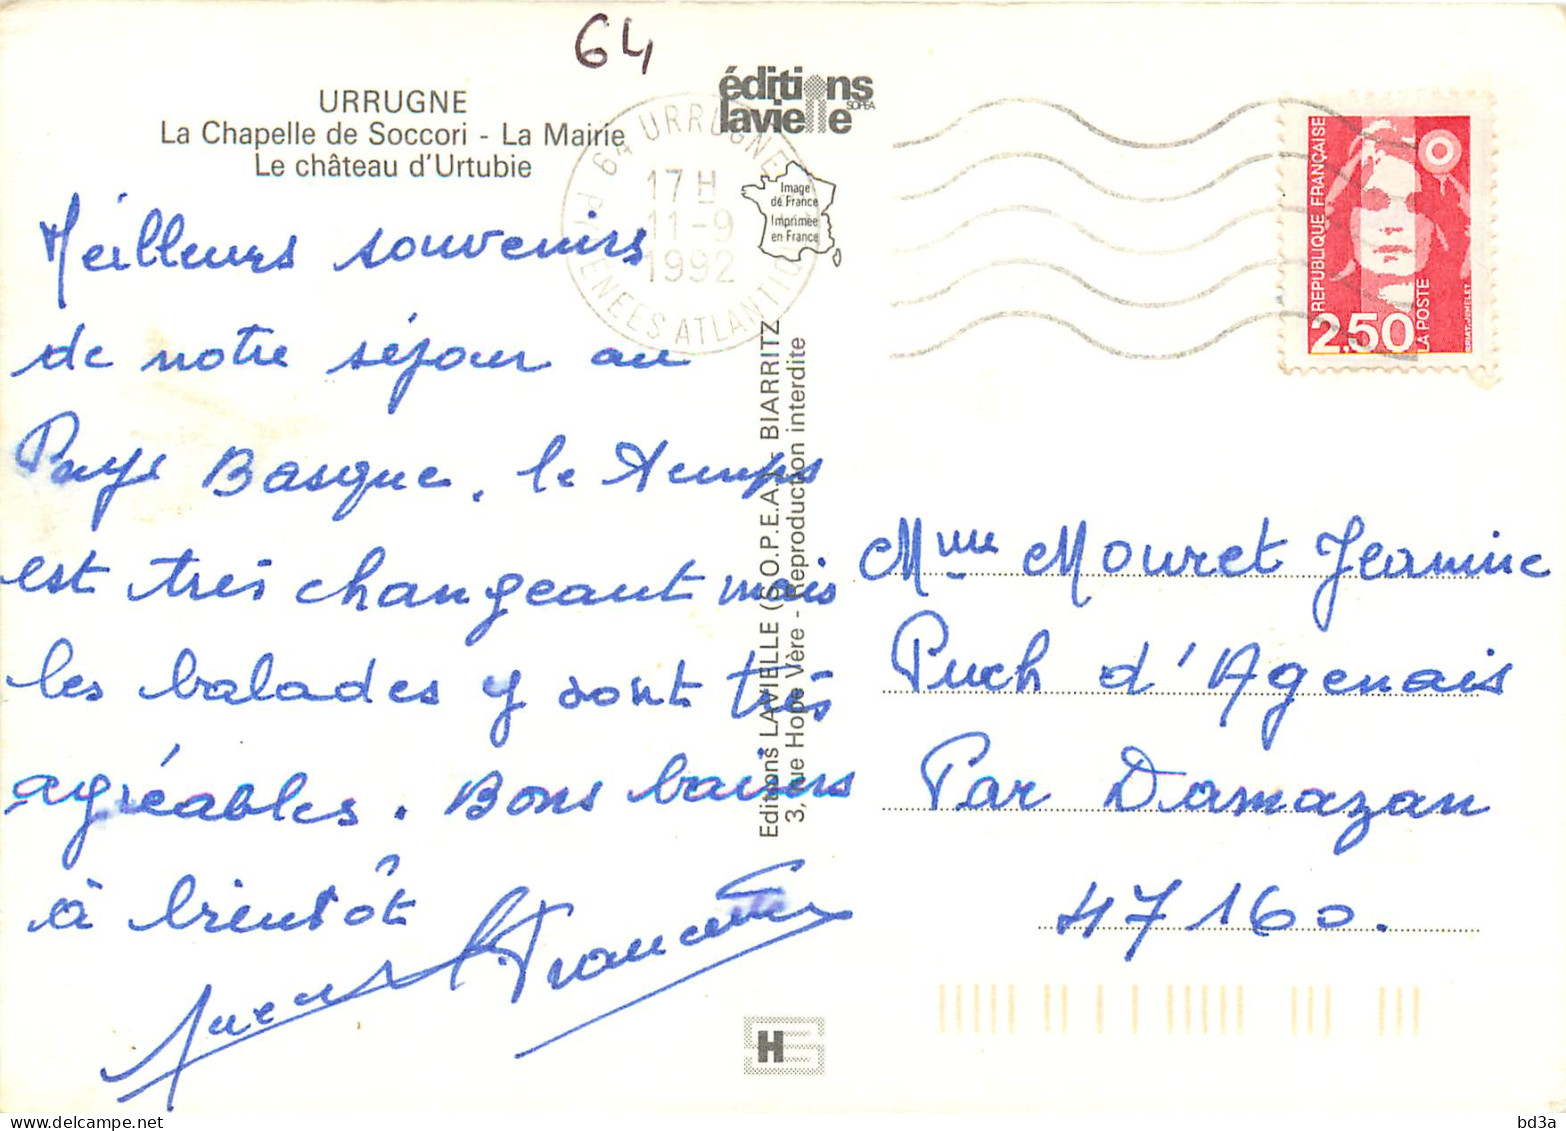 64
URRUGNE
La Chapelle de Soccori - La Mairie
Le château d'Urtubie
éditions
lavielle
SOPEA
64 URRUGNE
17 H
11-9
1992
PYRENEES ATLANTIQUES
Image
de France
Imprimée
en France
REPUBLIQUE FRANÇAISE
2,50
LA POSTE
Meilleurs souvenirs
de notre séjour au
Pays Basque, le temps
est très changeant mais
les balades y sont très
agréables. Bons baisers
à bientôt
Editions LAVIELLE (S.O.P.E.A.) BIARRITZ
3, rue Hope Vère - Reproduction interdite
Mme Mouret Jeanine
Puch d'Agenais
Par Damazan
47160.
H
delcampe.net
bd3a